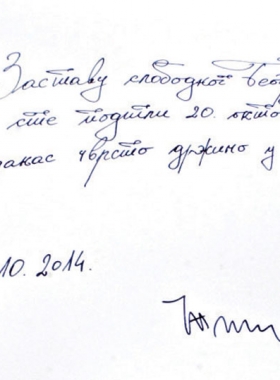 Заставу слободног Бео
сте подигли 20. окто
данас чврсто држимо у
10. 2014.